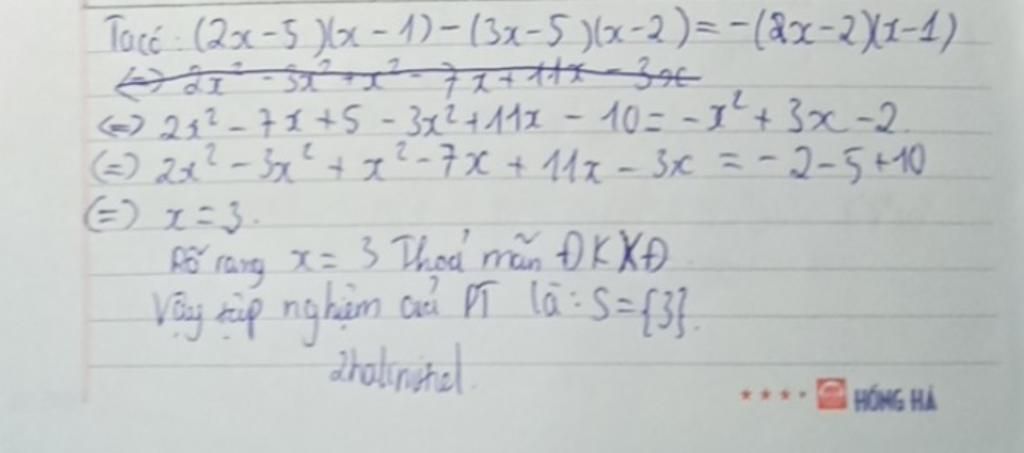 Ta có: (2x-5)(x-1)-(3x-5)(x-2)=-(2x-2)(x-1)
(=) 2x² - 3x² + x² - 7x + 11x - 3x
(=) 2x² - 7x + 5 - 3x² + 11x - 10 = -x² + 3x - 2.
(=) 2x² - 3x² + x² - 7x + 11x - 3x = -2-5+10
(=) x = 3.
Rõ rang x = 3 Thoả mãn ĐKXĐ
Vậy tập nghiệm của PT là: S={3}.
HỒNG HÀ